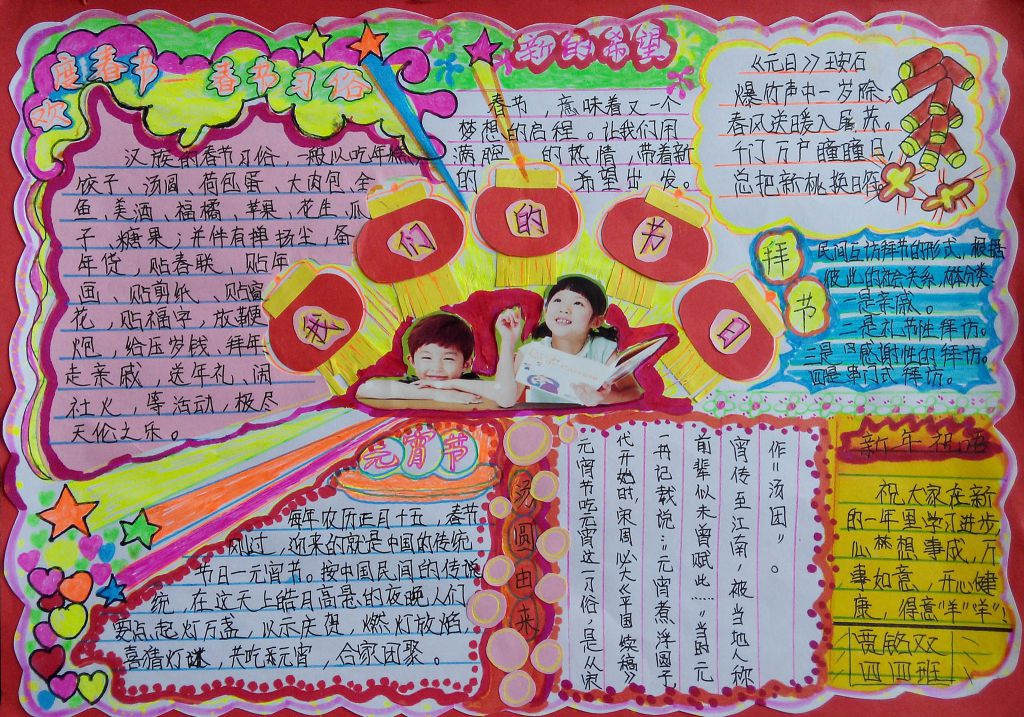 欢度春节
春节习俗
汉族的春节习俗，一般以吃年糕、
饺子、汤圆、荷包蛋、大肉包、全
鱼、美酒、福橘、苹果、花生、瓜
子、糖果；并伴有掸扬尘，备
年货，贴春联、贴年
画、贴剪纸、贴窗
花，贴福字，放鞭
炮，给压岁钱、拜年
走亲戚，送年礼、闹
社火，等活动，极尽
天伦之乐。
新的希望
春节，意味着又一个
梦想的启程。让我们用
满腔的热情，带着新
的希望出发。
《元日》王安石
爆竹声中一岁除，
春风送暖入屠苏。
千门万户瞳瞳日，
总把新桃换旧符
我们的节日
拜节
民间互访拜节的形式，根据
彼此的社会关系，大体分类
一是亲戚。
二是礼节性拜访。
三是感谢性的拜访。
四是串门式拜访。
元宵节
每年农历正月十五，春节
刚过，迎来的就是中国的传统
节日—元宵节。按中国民间的传说
统，在这天上皓月高悬的夜晚人们
要点起灯万盏，以示庆贺，燃灯放焰，
喜猜灯谜，共吃元宵，合家团聚。
汤圆由来
作"汤团"。
宵传至江南，被当地人称
前辈似未曾赋此……"当时元
一再记载说："元宵煮浮圆子，
代开始时，宋周必大《平园续稿》
元宵节吃元宵这一习俗，是从宋
新年祝语
祝大家在新
的一年里学习进步，
心想事成，万
事如意，开心健
康，得意"羊""羊"！
贾敏双
四四班